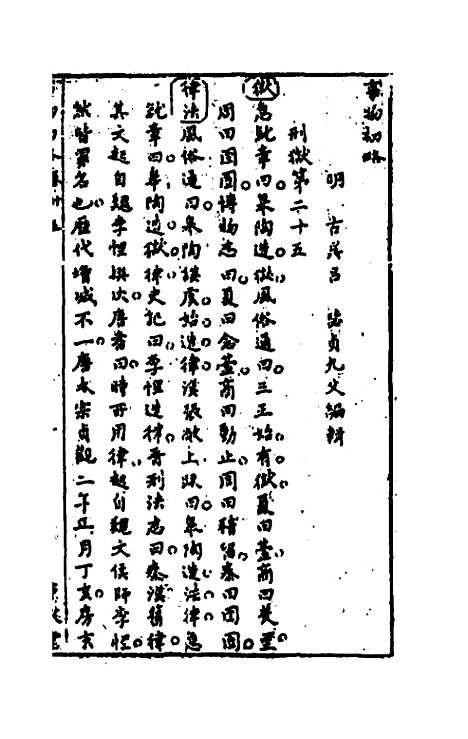 事物初略
明 古 呂 毖貞九父編輯
刑獄第二十五
獄急就章曰臯陶造獄風俗通曰三王始有獄夏曰臺商曰羑里
周曰囹圄博物志曰夏曰念臺商曰動止周曰稽留秦曰囹圄
律法風俗通曰臯陶謨虞始造律漢張敞上疏曰臯陶造法律急
就章曰臯陶造獄律史記曰李悝造律晉刑法志曰秦漢舊律
其文起自魏李悝撰次唐書曰時所用律起自魏文侯師李悝
然皆罪名也歷代增減不一唐太宗貞觀二年正月丁亥房玄